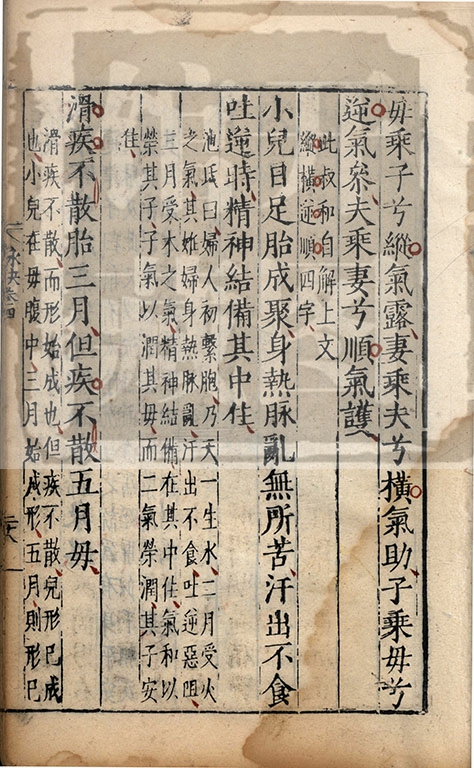 母乘子兮縱氣露妻乘夫兮橫氣助子乘母兮
逆氣參夫乘妻兮順氣護
此叔和自解上文
縱橫逆順四字
小兒日足胎成聚身熱脉亂無所苦汗出不食
吐逆時精神結備其中住
池氏曰婦人初繫胞乃天一生水二月受火
之氣其妊婦身熱脉亂汗出不食吐逆惡阻
三月受木之氣精神結備在其中住氣和以
榮其子子氣以潤其母而二氣榮潤其子安
住
滑疾不散胎三月但疾不散五月母
滑疾不散而形始成也但疾不散兒形已成
也小兒在母腹中三月始成形五月則形已
脉決卷四
二十六